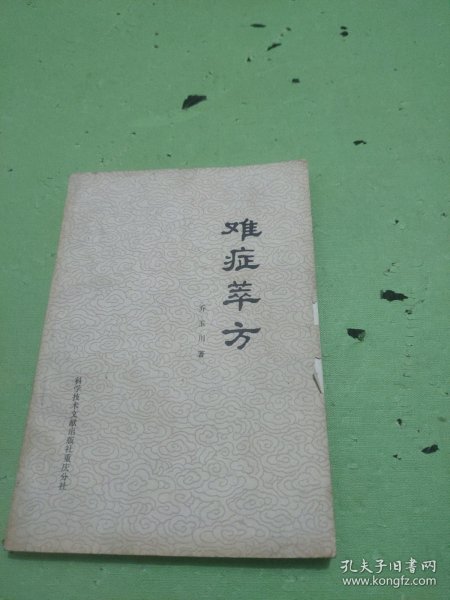 难症萃方
乔玉川 著
科学技术文献出版社重庆分社
孔夫子旧书网
www.kongfz.com